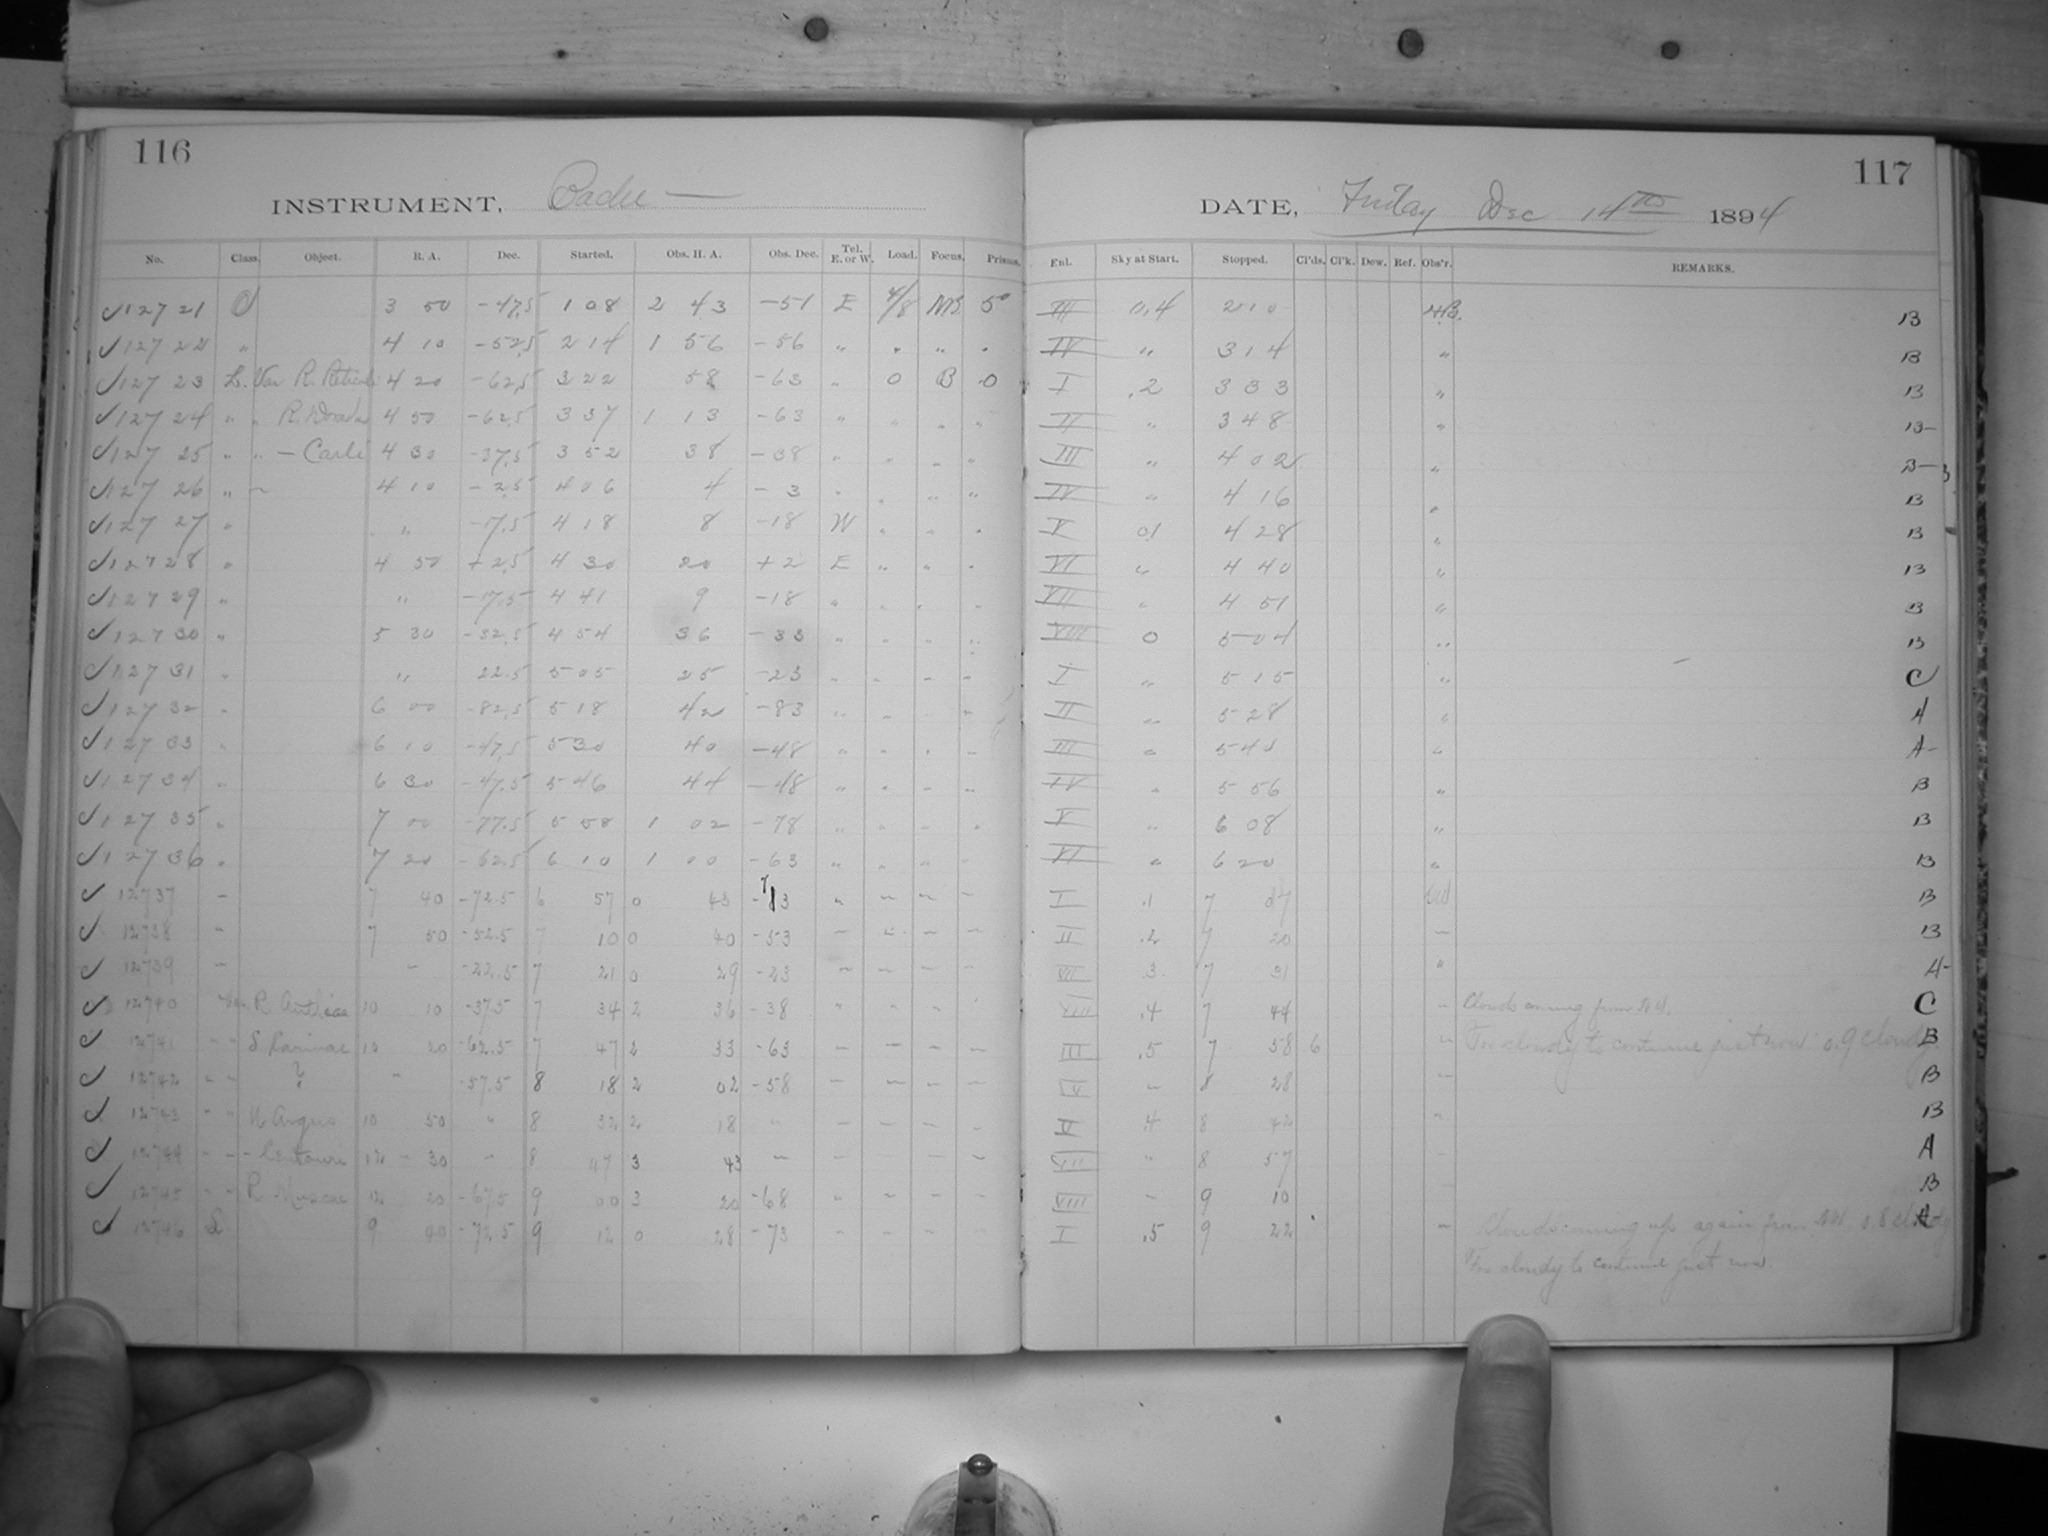 116
INSTRUMENT, Bache —
No. Class. Object. R. A. Dec. Started. Obs. H. A. Obs. Dec. Tel. E. or W. Load. Focus. Prisms.
✓12721 O 3 50 -47.5 1 08 2 43 -51 E 4/8 MB 5°
✓12722 " 4 10 -52.5 2 14 1 56 -56 " " " "
✓12723 L. Var R. Reticuli 4 20 -62.5 3 22 58 -63 " 0 B 0
✓12724 " " R. Doradus 4 50 -62.5 3 37 1 13 -63 " " " "
✓12725 " " — Caeli 4 30 -37.5 3 52 38 -38 " " " "
✓12726 " ~ 4 10 -2.5 4 06 4 -3 " " " "
✓12727 " " -17.5 4 18 8 -18 W " " "
✓12728 " 4 50 +2.5 4 30 20 +2 E " " "
✓12729 " " -17.5 4 41 9 -18 " " " "
✓12730 " 5 30 -32.5 4 54 36 -33 " " " "
✓12731 " " 22.5 5 05 25 -23 " " " "
✓12732 " 6 00 -82.5 5 18 42 -83 " " " "
✓12733 " 6 10 -47.5 5 30 40 -48 " " " "
✓12734 " 6 30 -47.5 5 46 44 -48 " " " "
✓12735 " 7 00 -77.5 5 58 1 02 -78 " " " "
✓12736 " 7 20 -62.5 6 10 1 00 -63 " " " "
✓ 12737 " 7 40 -72.5 6 57 0 43 -73 " " " "
✓ 12738 " 7 50 -52.5 7 10 0 40 -53 " " " "
✓ 12739 " " -22.5 7 21 0 29 -23 " " " "
✓ 12740 Var. R. Antliae 10 10 -37.5 7 34 2 36 -38 " " " "
✓ 12741 " " S Carinae 10 20 -62.5 7 47 2 33 -63 " " " "
✓ 12742 " " ? " -57.5 8 18 2 02 -58 " " " "
✓ 12743 " " Argus 10 50 " 8 32 2 18 " " " " "
✓ 12744 " " - Centauri 12 30 " 8 47 3 43 " " " " "
✓ 12745 " " R Muscae 12 20 -67.5 9 00 3 20 -68 " " " "
✓ 12746 L 9 40 -72.5 9 12 0 28 -73 " " " "
117
DATE, Friday Dec 14th 1894
Enl. Sky at Start. Stopped. Cl'ds. Cl'k. Dew. Ref. Obs'r. REMARKS.
III 0.4 2 10 B
IV " 3 14 " B
I .2 3 33 " B
II " 3 48 " B-
III " 4 02 " B-
IV " 4 16 " B
V 01 4 28 " B
VI " 4 40 " B
VII " 4 51 " B
VIII 0 5 04 " B
I " 5 15 " C
II " 5 28 " A
III " 5 40 " A-
IV " 5 56 " B
V " 6 08 " B
VI " 6 20 " B
I .1 7 07 B
II .2 7 20 " B
VII .3 7 31 " A-
VIII .4 7 44 " Clouds coming from S.W. C
III .5 7 58 6 " Too cloudy to continue just now 0.9 cloudy. B
IV " 8 28 " B
V .4 8 42 " B
VII " 8 57 A
VIII " 9 10 B
I .5 9 22 " Clouds coming up again from S.W. 0.8 cloudy A
Too cloudy to continue just now.